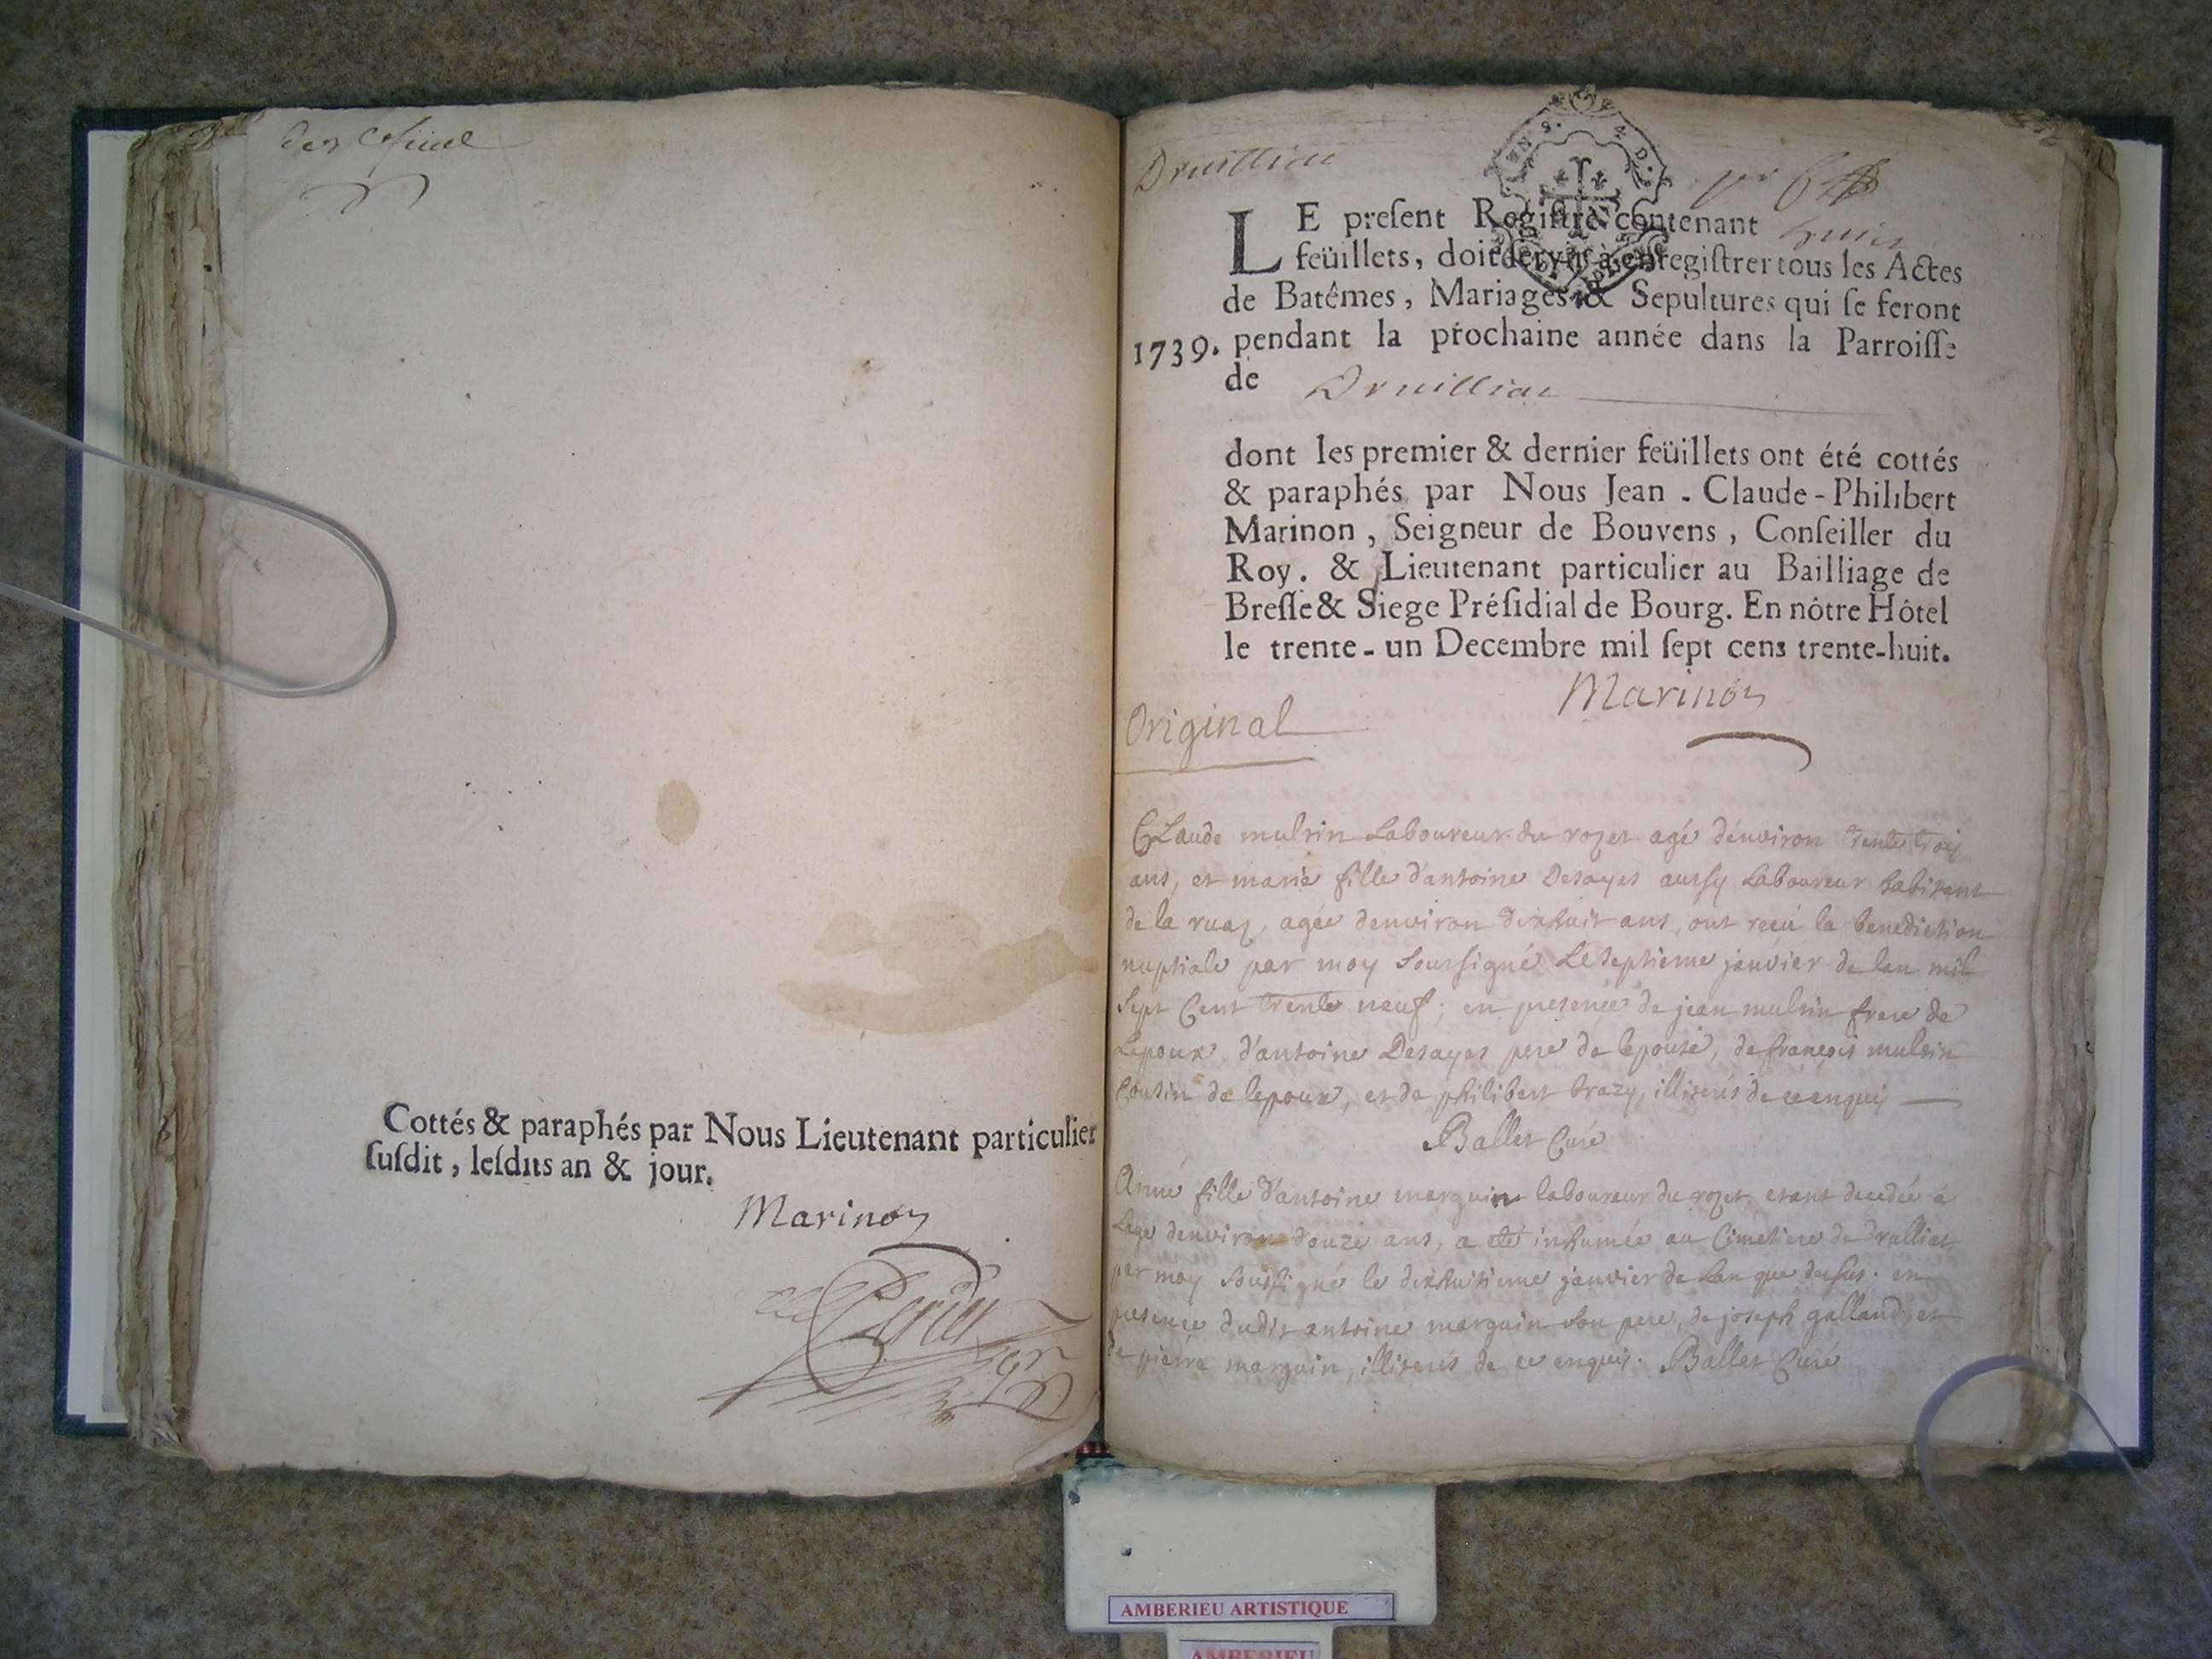 Cottés & paraphés par Nous Lieutenant particulier
ſuſdit, leſdits an & jour.
Marinon
Druilliat
LE preſent Regiſtre contenant
feüillets, doit ſervir à enregiſtrer tous les Actes
de Batêmes, Mariages & Sepultures qui ſe feront
1739. pendant la prochaine année dans la Parroiſſe
de Druilliat
dont les premier & dernier feüillets ont été cottés
& paraphés par Nous Jean-Claude-Philibert
Marinon, Seigneur de Bouvens, Conſeiller du
Roy. & Lieutenant particulier au Bailliage de
Breſſe & Siege Préſidial de Bourg. En nôtre Hôtel
le trente-un Decembre mil ſept cens trente-huit.
Marinon
Original
Claude mulsin Laboureur du rozet agé d'environ trente trois
ans, et marie fille d'antoine Desayes aussy Laboureur habitent
de la ruaz, agée denviron dixhuit ans, ont recu la benediction
nuptiale par moy Soussigné Le Septieme janvier de lan mil
Sept Cent trente neuf; en presence de jean mulsin frere de
Lepoux, d'antoine Desayes pere de lepouse, de françois mulsin
Cousin de lepoux, et de philibert brazy, illiterés de ce enquis
Ballet Curé
Anne fille d'antoine marguin laboureur du rozet, etant decedée a
Lage denviron douze ans, a eté inhumée au Cimetiere de drulliat
par moy Soussigné le dixhuitieme janvier de Lan que dessus. en
presence dudit antoine marguin son pere, de joseph galland, et
de pierre marguin, illiterés de ce enquis. Ballet Curé
AMBERIEU ARTISTIQUE
AMBERIEU